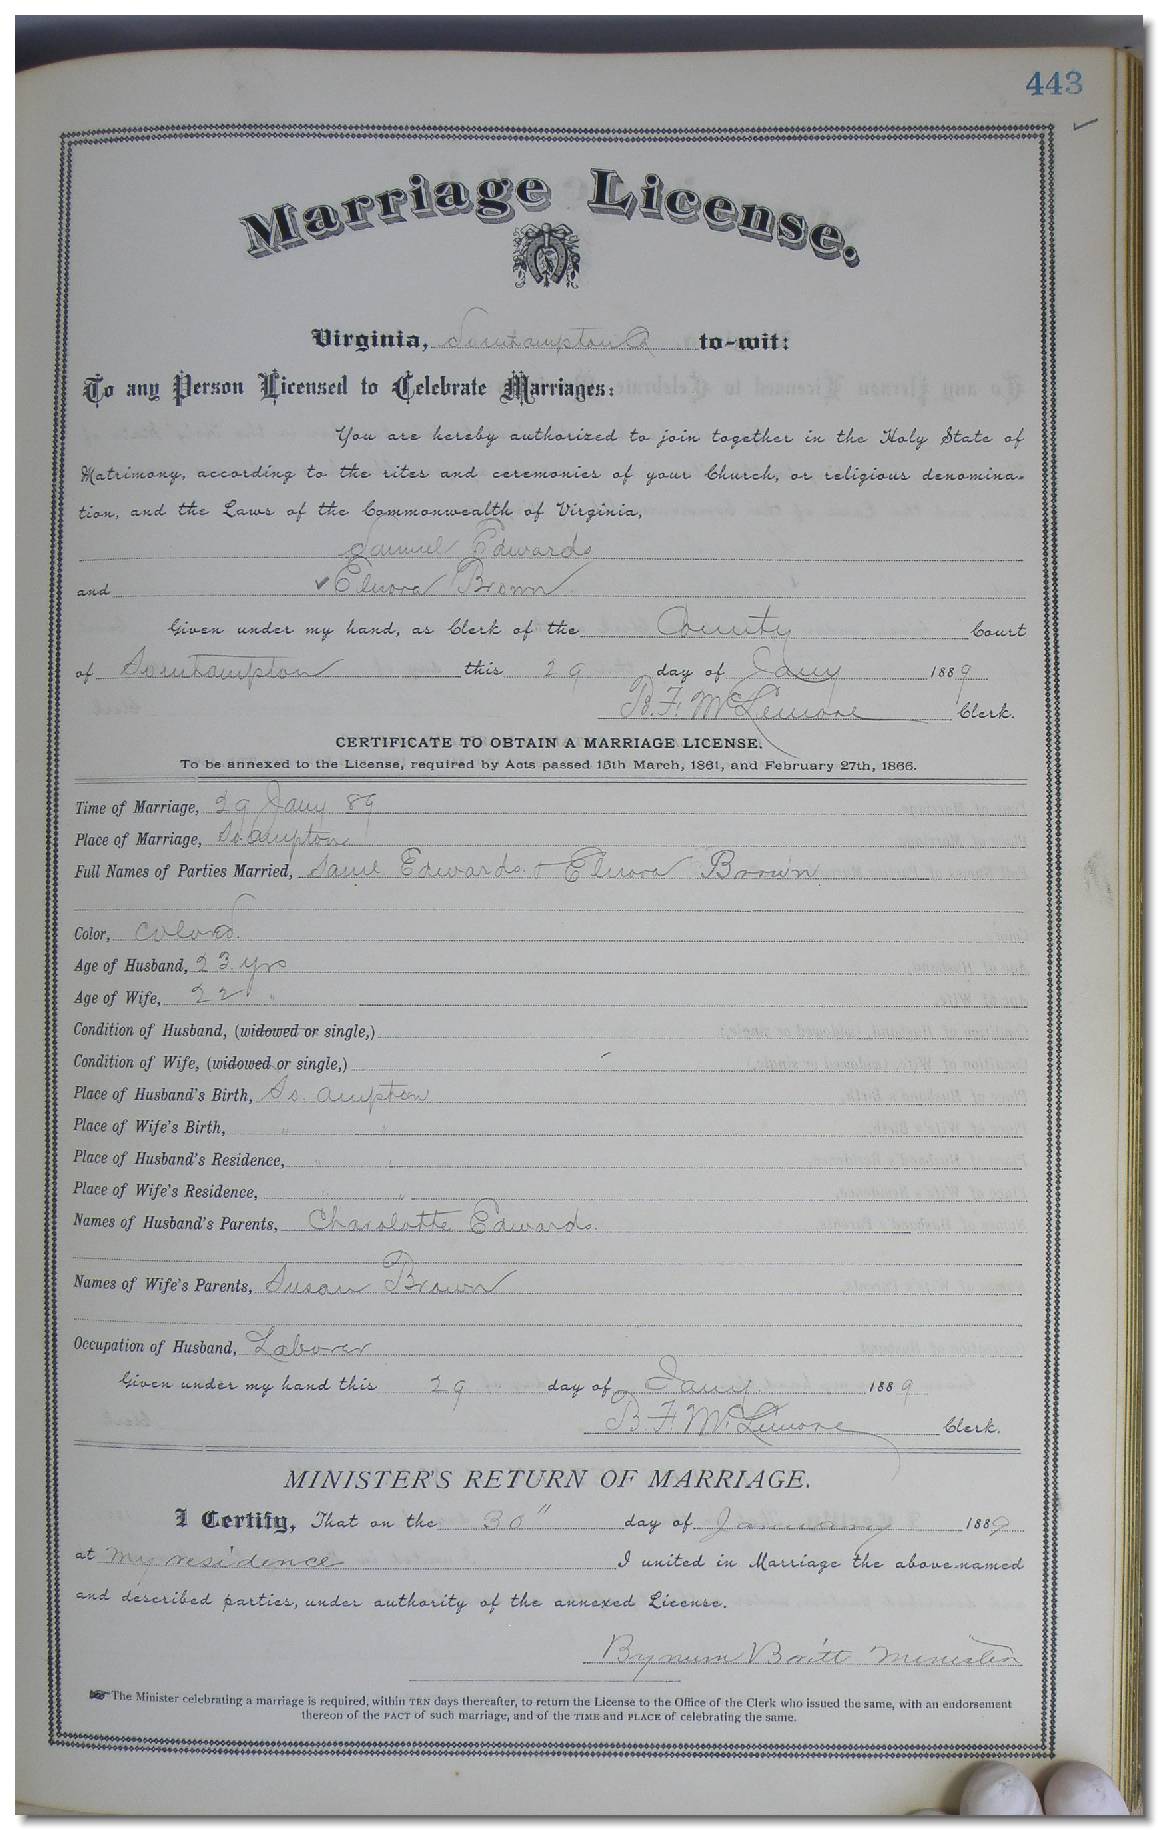 443
Marriage License.
Virginia, Southampton Co to-wit:
To any Person Licensed to Celebrate Marriages:
You are hereby authorized to join together in the Holy State of
Matrimony, according to the rites and ceremonies of your Church, or religious denomina-
tion, and the Laws of the Commonwealth of Virginia,
Samuel Edwards
and Elnora Brown
Given under my hand, as Clerk of the County Court
of Southampton this 29 day of Jany 1889
B. F. McLemore Clerk.
CERTIFICATE TO OBTAIN A MARRIAGE LICENSE.
To be annexed to the License, required by Acts passed 15th March, 1861, and February 27th, 1866.
Time of Marriage, 29 Jany 89
Place of Marriage, So.ampton
Full Names of Parties Married, Saml Edwards & Elnora Brown
Color, Colored.
Age of Husband, 23 yrs
Age of Wife, 22 "
Condition of Husband, (widowed or single,)
Condition of Wife, (widowed or single,)
Place of Husband's Birth, So. ampton
Place of Wife's Birth, " "
Place of Husband's Residence, " "
Place of Wife's Residence, " "
Names of Husband's Parents, Charlotte Edwards.
Names of Wife's Parents, Susan Brown
Occupation of Husband, Laborer
Given under my hand this 29 day of Jany 1889
B. F. McLemore Clerk.
MINISTER'S RETURN OF MARRIAGE.
I Certify, That on the 30" day of January 1889
at my residence I united in Marriage the above-named
and described parties, under authority of the annexed License.
Bynum Britt Minister
The Minister celebrating a marriage is required, within TEN days thereafter, to return the License to the Office of the Clerk who issued the same, with an endorsement
thereon of the FACT of such marriage, and of the TIME and PLACE of celebrating the same.